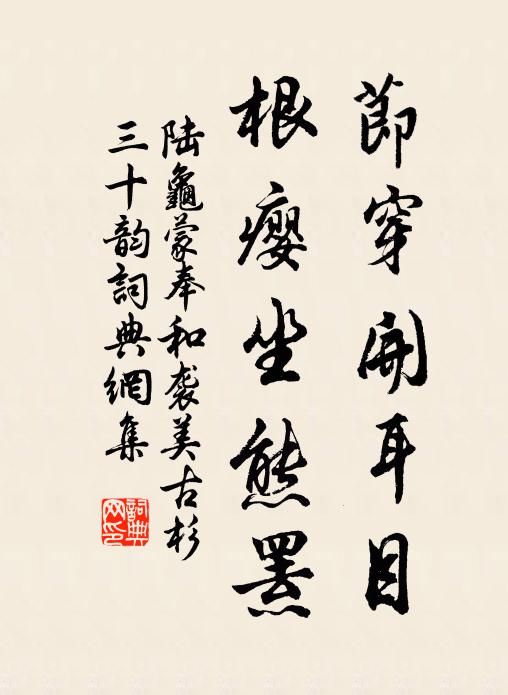 節穿開耳目
根癭坐熊羆
陆龜蒙奉和袭美古杉
三十韵詞典網集
詞典
网印